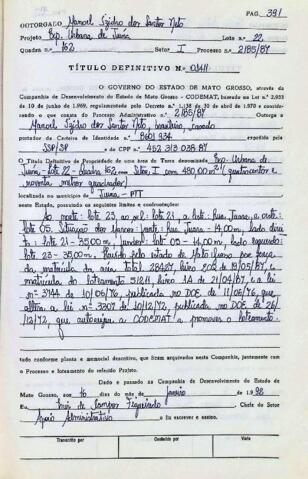 PAG. 391
OUTORGADO Manoel Izidro dos Santos Neto
Projeto Exp. Urbana de Juína Lote nº 22
Quadra n.º 162 Setor I Processo n.º 2185/87
TÍTULO DEFINITIVO Nº 03411
O GOVERNO DO ESTADO DE MATO GROSSO, através da
Companhia de Desenvolvimento do Estado de Mato Grosso - CODEMAT, baseado na Lei n.º
de 10 de junho de 1969, regulamentada pelo Decreto n.º 1.138 de 30 de abril de 1970 e considerando
o que consta do Processo Administrativo n.º 2185/87 Outorga a
Manoel Izidro dos Santos Neto, brasileiro, casado
portador da Carteira de Identidade n.º 8601934 expedida pela
SSP/SP e do CPF n.º
O Título Definitivo de Propriedade de uma área de Terra denominada Exp. Urbana de
Juína, Lote 22 - Quadra 162, Setor I, com 490,00 m² (quatrocentos e
noventa metros quadrados)
localizada no município de Juína - MT
neste Estado, possuindo os seguintes limites e confrontações:
Ao norte: lote 23, ao sul: lote 21, a leste: Rua Juara, a oeste:
lote 05. Situação dos Marcos: frente: Rua Juara - 14,00m, lado direi-
to: lote 21 - 35,00m, fundos: lote 05 - 14,00m, lado esquerdo:
lote 23 - 35,00m. Havido pelo estado de Mato Grosso por força
da matrícula da área total 28487, livro de 19/05/87, e
matrícula do loteamento 51211, livro 1A de 21/04/87, e a lei
nº 3744 de 10/06/76, publicada no DOE de 11/06/76 que
altera a lei nº 3307 de 10/12/72, publicada no DOE de 26/
12/72, que autoriza a CODEMAT a promover o loteamento.
tudo conforme planta e memorial descritivo, que foram arquivados nesta Companhia, juntamente com
o Processo e loteamento do referido Projeto.
Dado e passado na Companhia de Desenvolvimento do Estado de
Mato Grosso, aos 16 dias do mês de janeiro de 1998
Eu, de Campos Figueiredo, Chefe do Setor
Apoio Administrativo o fiz escrever e assino.
Transcrito por Conferido por Visto